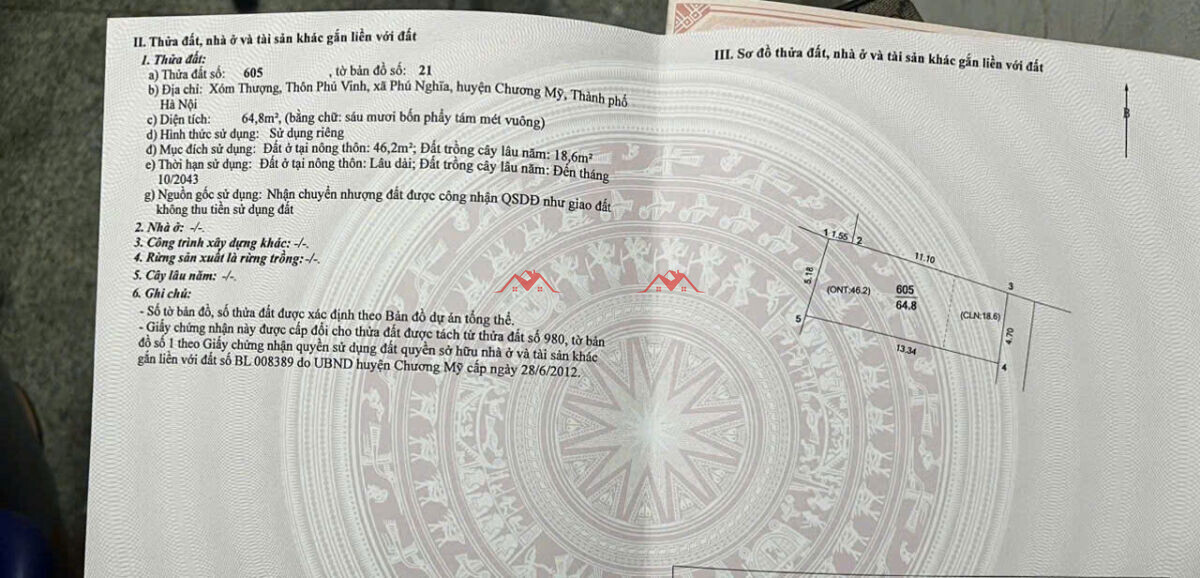 II. Thửa đất, nhà ở và tài sản khác gắn liền với đất
1. Thửa đất:
a) Thửa đất số: 605 , tờ bản đồ số: 21
b) Địa chỉ: Xóm Thượng, Thôn Phú Vinh, xã Phú Nghĩa, huyện Chương Mỹ, Thành phố
Hà Nội
c) Diện tích: 64,8m², (bằng chữ: sáu mươi bốn phẩy tám mét vuông)
d) Hình thức sử dụng: Sử dụng riêng
đ) Mục đích sử dụng: Đất ở tại nông thôn: 46,2m²; Đất trồng cây lâu năm: 18,6m²
e) Thời hạn sử dụng: Đất ở tại nông thôn: Lâu dài; Đất trồng cây lâu năm: Đến tháng
10/2043
g) Nguồn gốc sử dụng: Nhận chuyển nhượng đất được công nhận QSDĐ như giao đất
không thu tiền sử dụng đất
2. Nhà ở: -/-.
3. Công trình xây dựng khác: -/-.
4. Rừng sản xuất là rừng trồng: -/-.
5. Cây lâu năm: -/-.
6. Ghi chú:
- Số tờ bản đồ, số thửa đất được xác định theo Bản đồ dự án tổng thể.
- Giấy chứng nhận này được cấp đổi cho thửa đất được tách từ thửa đất số 980, tờ bản
đồ số 1 theo Giấy chứng nhận quyền sử dụng đất quyền sở hữu nhà ở và tài sản khác
gắn liền với đất số BL 008389 do UBND huyện Chương Mỹ cấp ngày 28/6/2012.
III. Sơ đồ thửa đất, nhà ở và tài sản khác gắn liền với đất
B
1 1.55 2
11.10
3
5.18
(ONT:46.2)
605
64.8
(CLN:18.6)
4.70
5
13.34
4